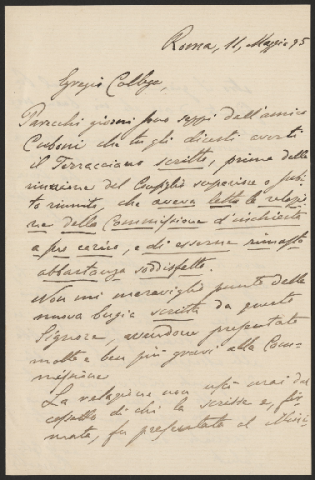 Roma, 11, Maggio 95
Egregio Collega,
Parecchi giorni sono seppi dall'amico
Cuboni che tu gli dicesti averti
il Terracciano scritto, prima della
riunione del Consiglio superiore o subi-
to riunito, che aveva letto la relazio-
ne della Commissione d'inchiesta
a suo carico, e di esserne rimasto
abbastanza soddisfatto.
Non mi meraviglio punto della
nuova bugia scritta da questo
Signore, avendone presentate
molte e ben più gravi alla Com-
missione
La relazione non uscì mai dal
cassetto di chi la scrisse e, fir-
mata, fu presentata al Mini-